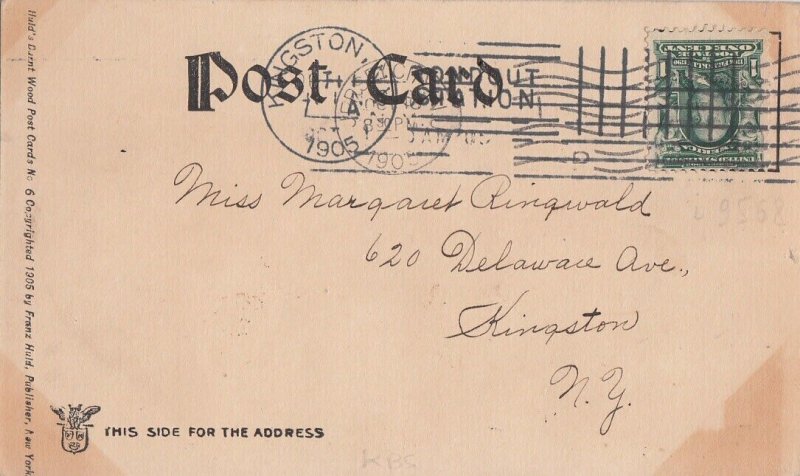 Post Card
KINGSTON,
1905
1905
ONE CENT
Miss Margaret Ringwald
620 Delaware Ave.,
Kingston
N.Y.
THIS SIDE FOR THE ADDRESS
Huld's Burnt Wood Post Cards No 6 Copyrighted 1905 by Franz Huld, Publisher, New York
9568
KBS